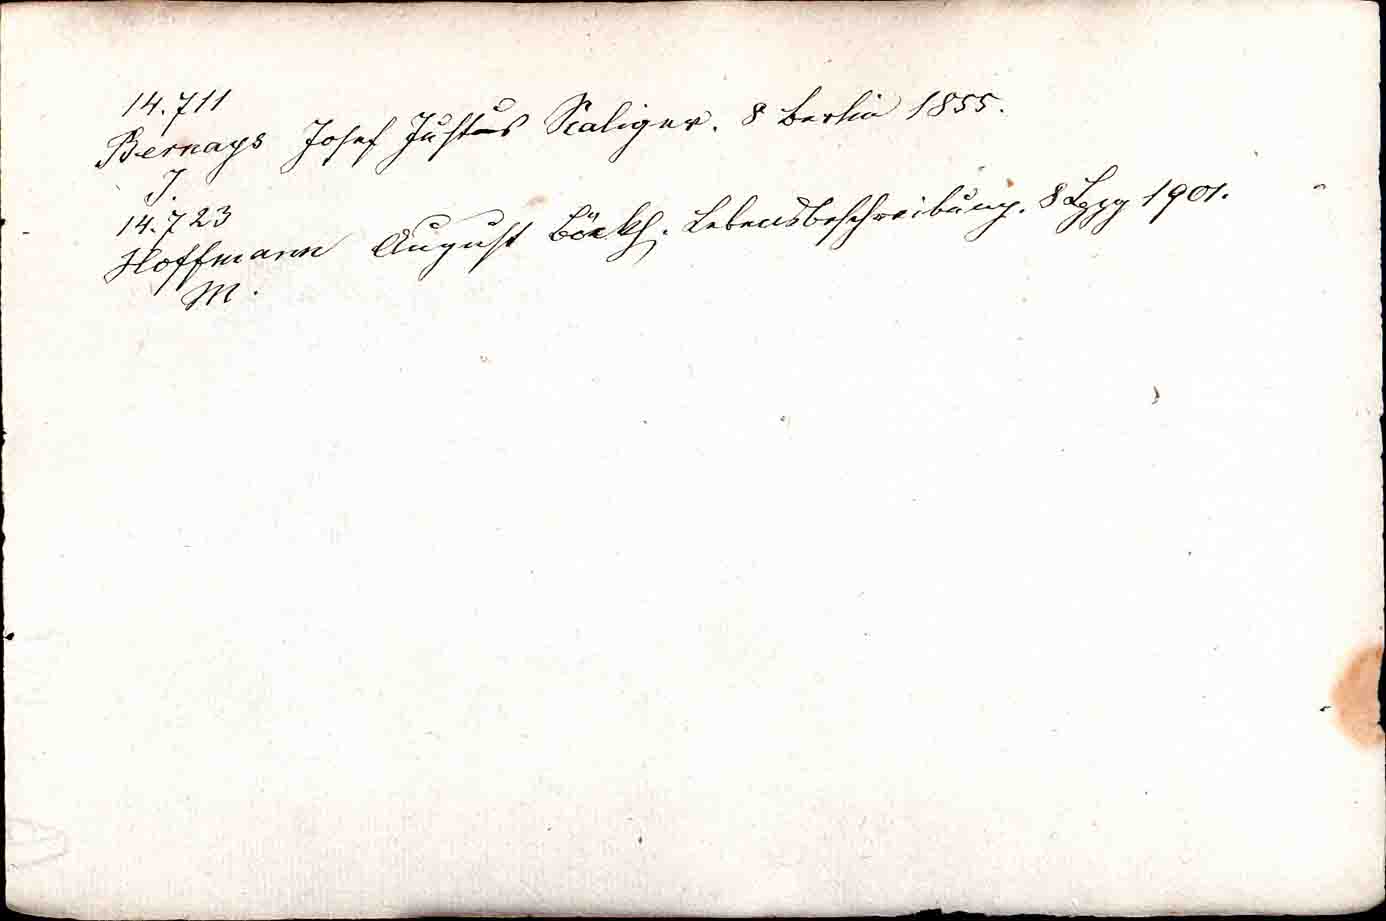 14.711
Bernays Josef Justus Scaliger. 8 Berlin 1855.
J.
14.723
Hoffmann August Böckh. Lebensbeschreibung. 8 Lpzg 1901.
M.